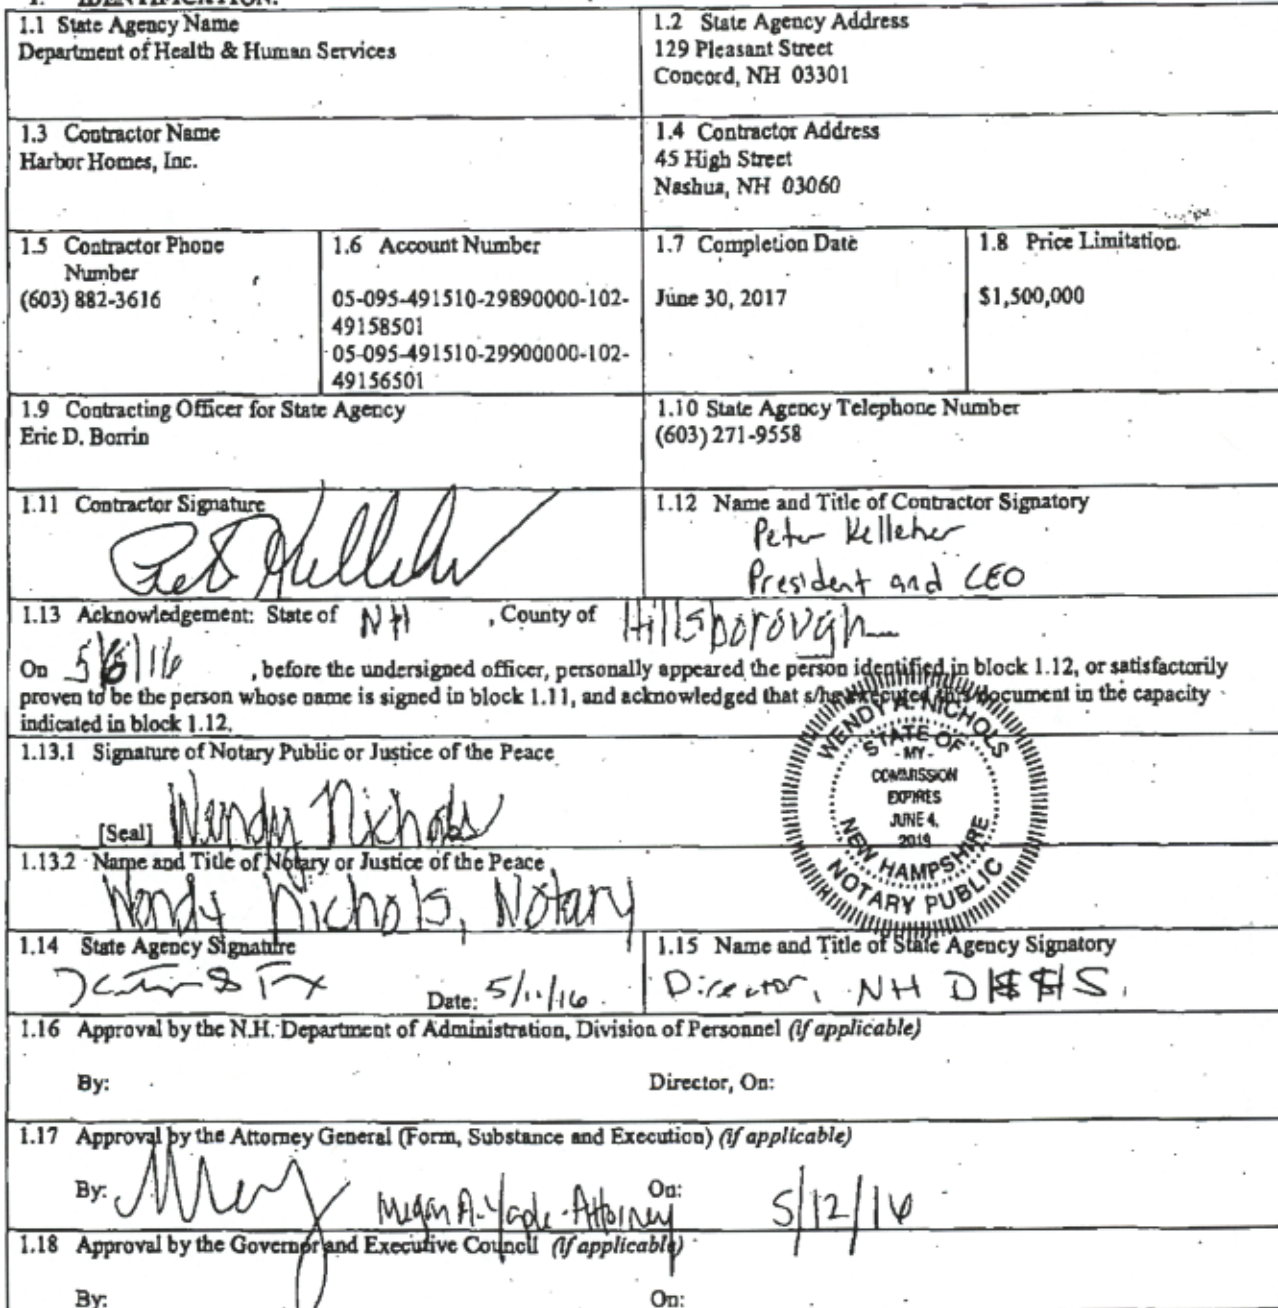 1. IDENTIFICATION.
1.1 State Agency Name
Department of Health & Human Services
1.2 State Agency Address
129 Pleasant Street
Concord, NH 03301
1.3 Contractor Name
Harbor Homes, Inc.
1.4 Contractor Address
45 High Street
Nashua, NH 03060
1.5 Contractor Phone
Number
(603) 882-3616
1.6 Account Number
05-095-491510-29890000-102-
49158501
05-095-491510-29900000-102-
49156501
1.7 Completion Date
June 30, 2017
1.8 Price Limitation
$1,500,000
1.9 Contracting Officer for State Agency
Eric D. Borrin
1.10 State Agency Telephone Number
(603) 271-9558
1.11 Contractor Signature
1.12 Name and Title of Contractor Signatory
Peter Kelleher
President and CEO
1.13 Acknowledgement: State of NH , County of Hillsborough
On 5/6/16 , before the undersigned officer, personally appeared the person identified in block 1.12, or satisfactorily
proven to be the person whose name is signed in block 1.11, and acknowledged that s/he executed this document in the capacity
indicated in block 1.12.
1.13.1 Signature of Notary Public or Justice of the Peace
[Seal] Wendy Nichols
WENDY A. NICHOLS
STATE OF
- MY -
COMMISSION
EXPIRES
JUNE 4,
2019
NEW HAMPSHIRE
NOTARY PUBLIC
1.13.2 Name and Title of Notary or Justice of the Peace
Wendy Nichols, Notary
1.14 State Agency Signature
Date: 5/11/16
1.15 Name and Title of State Agency Signatory
Director, NH
1.16 Approval by the N.H. Department of Administration, Division of Personnel (if applicable)
By: Director, On:
1.17 Approval by the Attorney General (Form, Substance and Execution) (if applicable)
By: Megan A. Yaple - Attorney On: 5/12/16
1.18 Approval by the Governor and Executive Council (if applicable)
By: On: